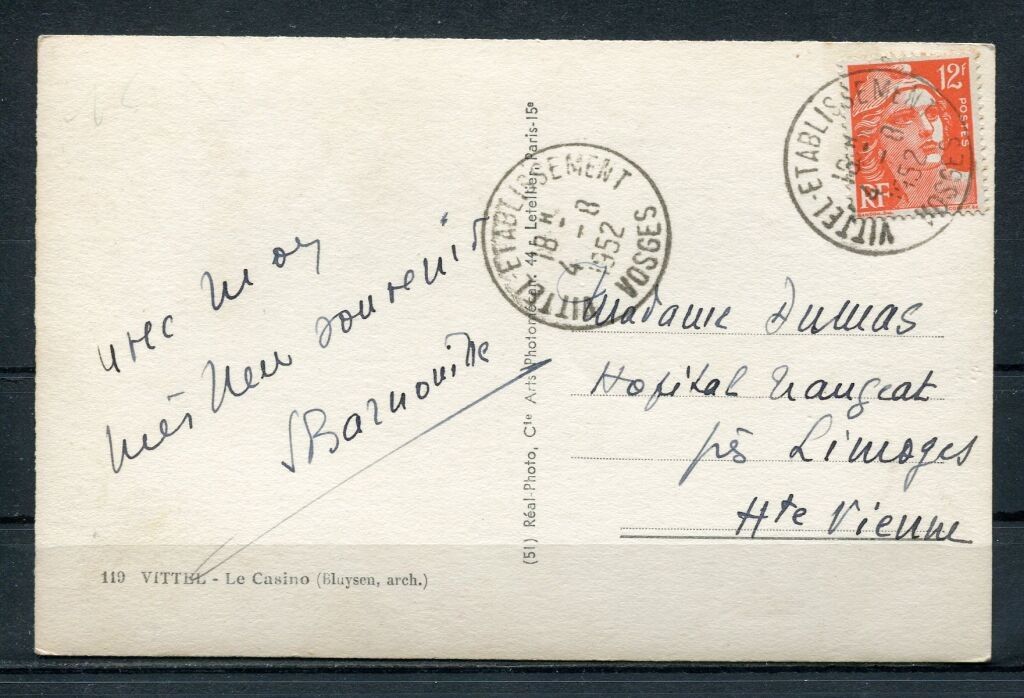 avec mon
meilleur souvenir
119 VITTEL - Le Casino (Bluysen, arch.)
(51) Réal-Photo, Cie Arts Photomécan. 44, r. Letellier, Paris-15e
VITTEL-ETABLISSEMENT
18 H
4 - 8
1952
VOSGES
12f
POSTES
RF
VITTEL-ETABLISSEMENT
18 H
4 - 8
1952
VOSGES
Madame Dumas
Hopital Naugeat
près Limoges
Hte Vienne